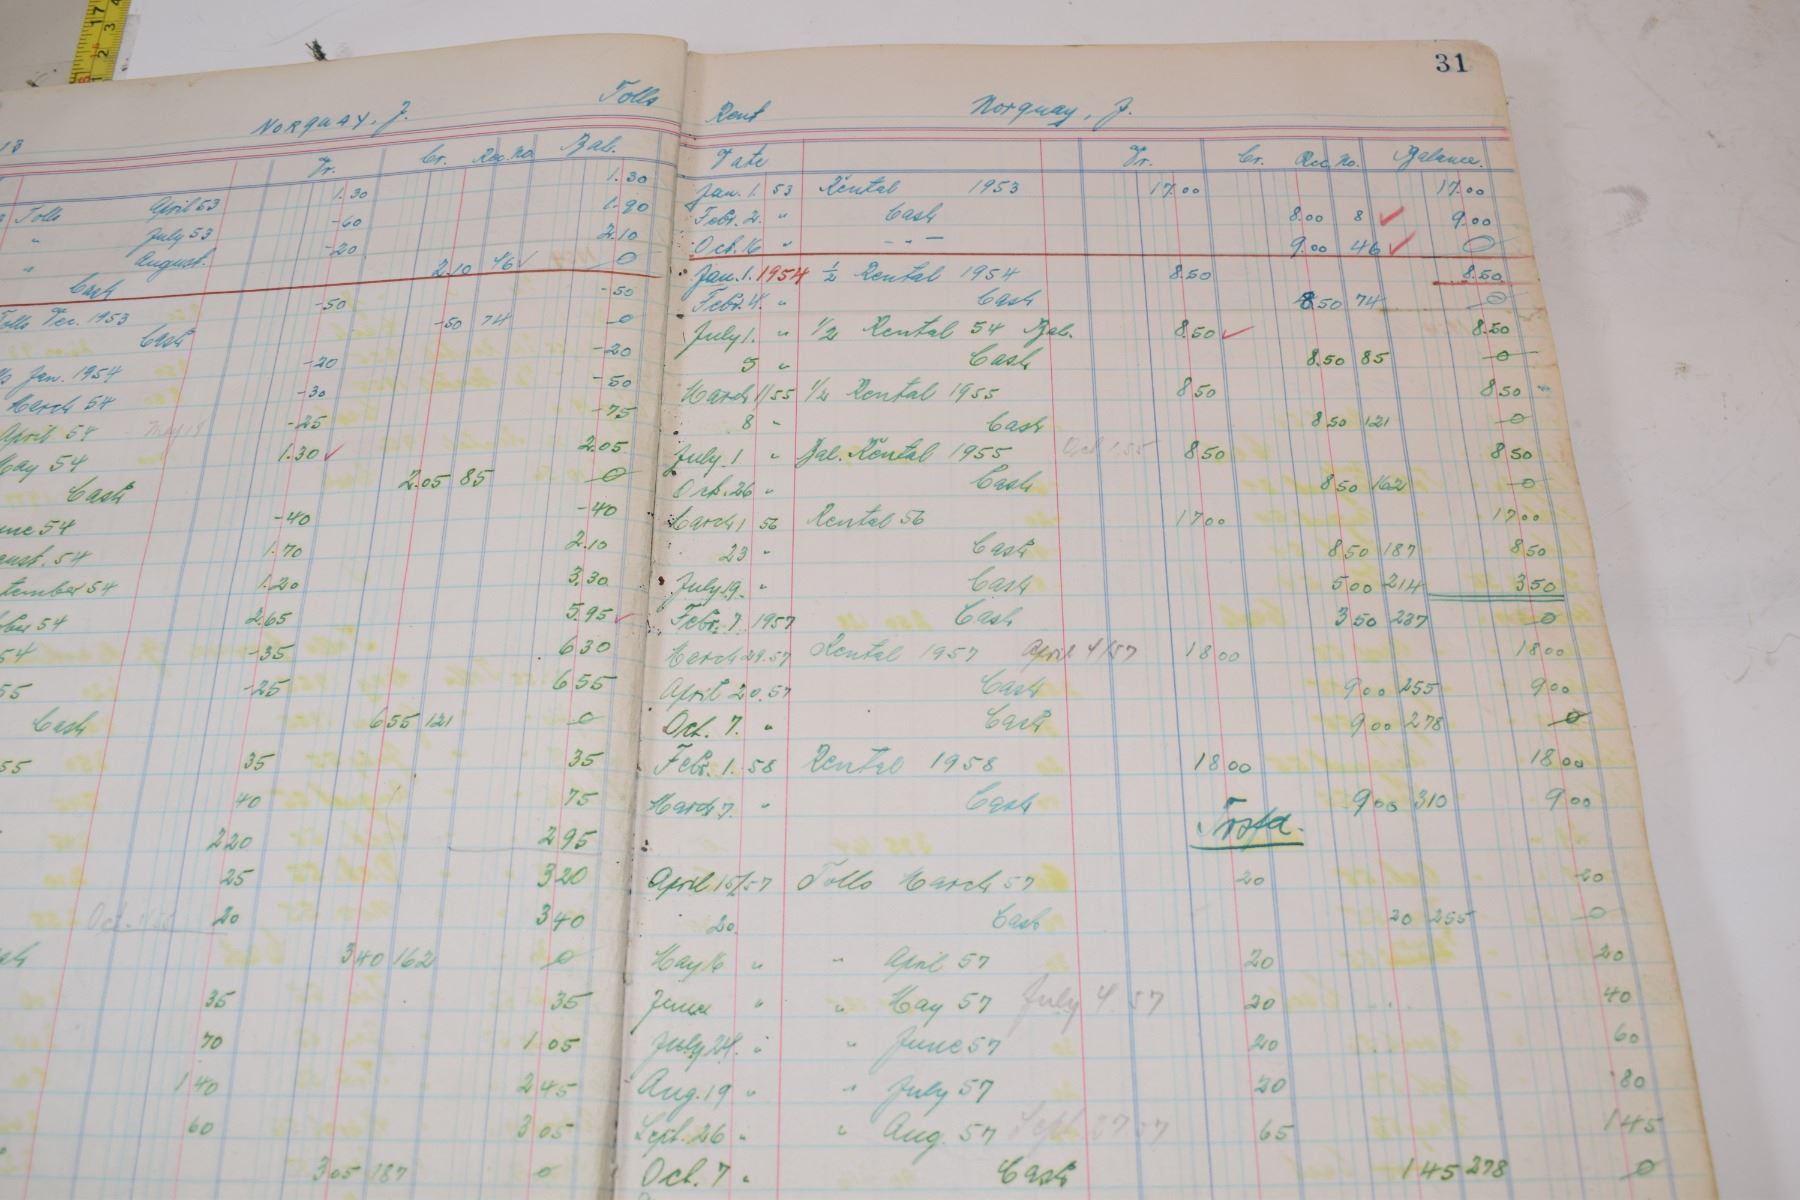 Tolls
NORQUAY, J.
13
Dr. Cr. Rec. No. Bal.
Tolls April 53 1.30 1.30
" July 53 -60 1.90
" August -20 2.10
Cash 2.10 46 0
Tolls Dec. 1953 -50 -50
Cash -50 74 0
Jan. 1954 -20 -20
March 54 -30 -50
April 54 -25 -75
May 54 1.30 2.05
Cash 2.05 85 0
June 54 -40 -40
August. 54 1.70 2.10
September 54 1.20 3.30
54 2.65 5.95
54 -35 6 30
55 -25 6 55
Cash 6 55 121 0
55 35 35
40 75
2 20 2 95
25 3 20
20 3 40
Cash 3 40 162 0
35 35
70 1 05
1 40 2 45
60 3 05
3 05 187 0
31
Rent Norquay, J.
Date Dr. Cr. Rec. No. Balance.
Jan. 1. 53 Rental 1953 17.00 17.00
Febr. 2. " Cash 8.00 8 9.00
Oct. 16 " - " - 9.00 46 0
Jan. 1. 1954 ½ Rental 1954 8.50 8.50
Febr. 4. " Cash 8.50 74 0
July 1. " 1/2 Rental 54 Bal. 8.50 8.50
5 " Cash 8.50 85 0
March 1/55 1/2 Rental 1955 8 50 8 50
8 " Cash 8 50 121 0
July 1 " Bal. Rental 1955 Oct 1 55 8 50 8 50
Oct. 26 " Cash 8 50 162 0
March 1 56 Rental 56 17 00 17 00
23 " Cash 8 50 187 8 50
July 19. " Cash 5 00 214 3 50
Febr. 7. 1957 Cash 3 50 237 0
March 29. 57 Rental 1957 April 4/57 18 00 18 00
April 20. 57 Cash 9 00 255 9 00
Oct. 7. " Cash 9 00 278 0
Febr. 1. 58 Rental 1958 18 00 18 00
March 7. " Cash 9 00 310 9 00
Trsfd.
April 15/57 Tolls March 57 20 20
20. Cash 20 255 0
May 16 " " April 57 20 20
June " " May 57 July 4. 57 20 40
July 24. " " June 57 20 60
Aug. 19 " " July 57 20 80
Sept. 26 " " Aug. 57 Sept 27 57 65 1 45
Oct. 7 " Cash 1 45 278 0